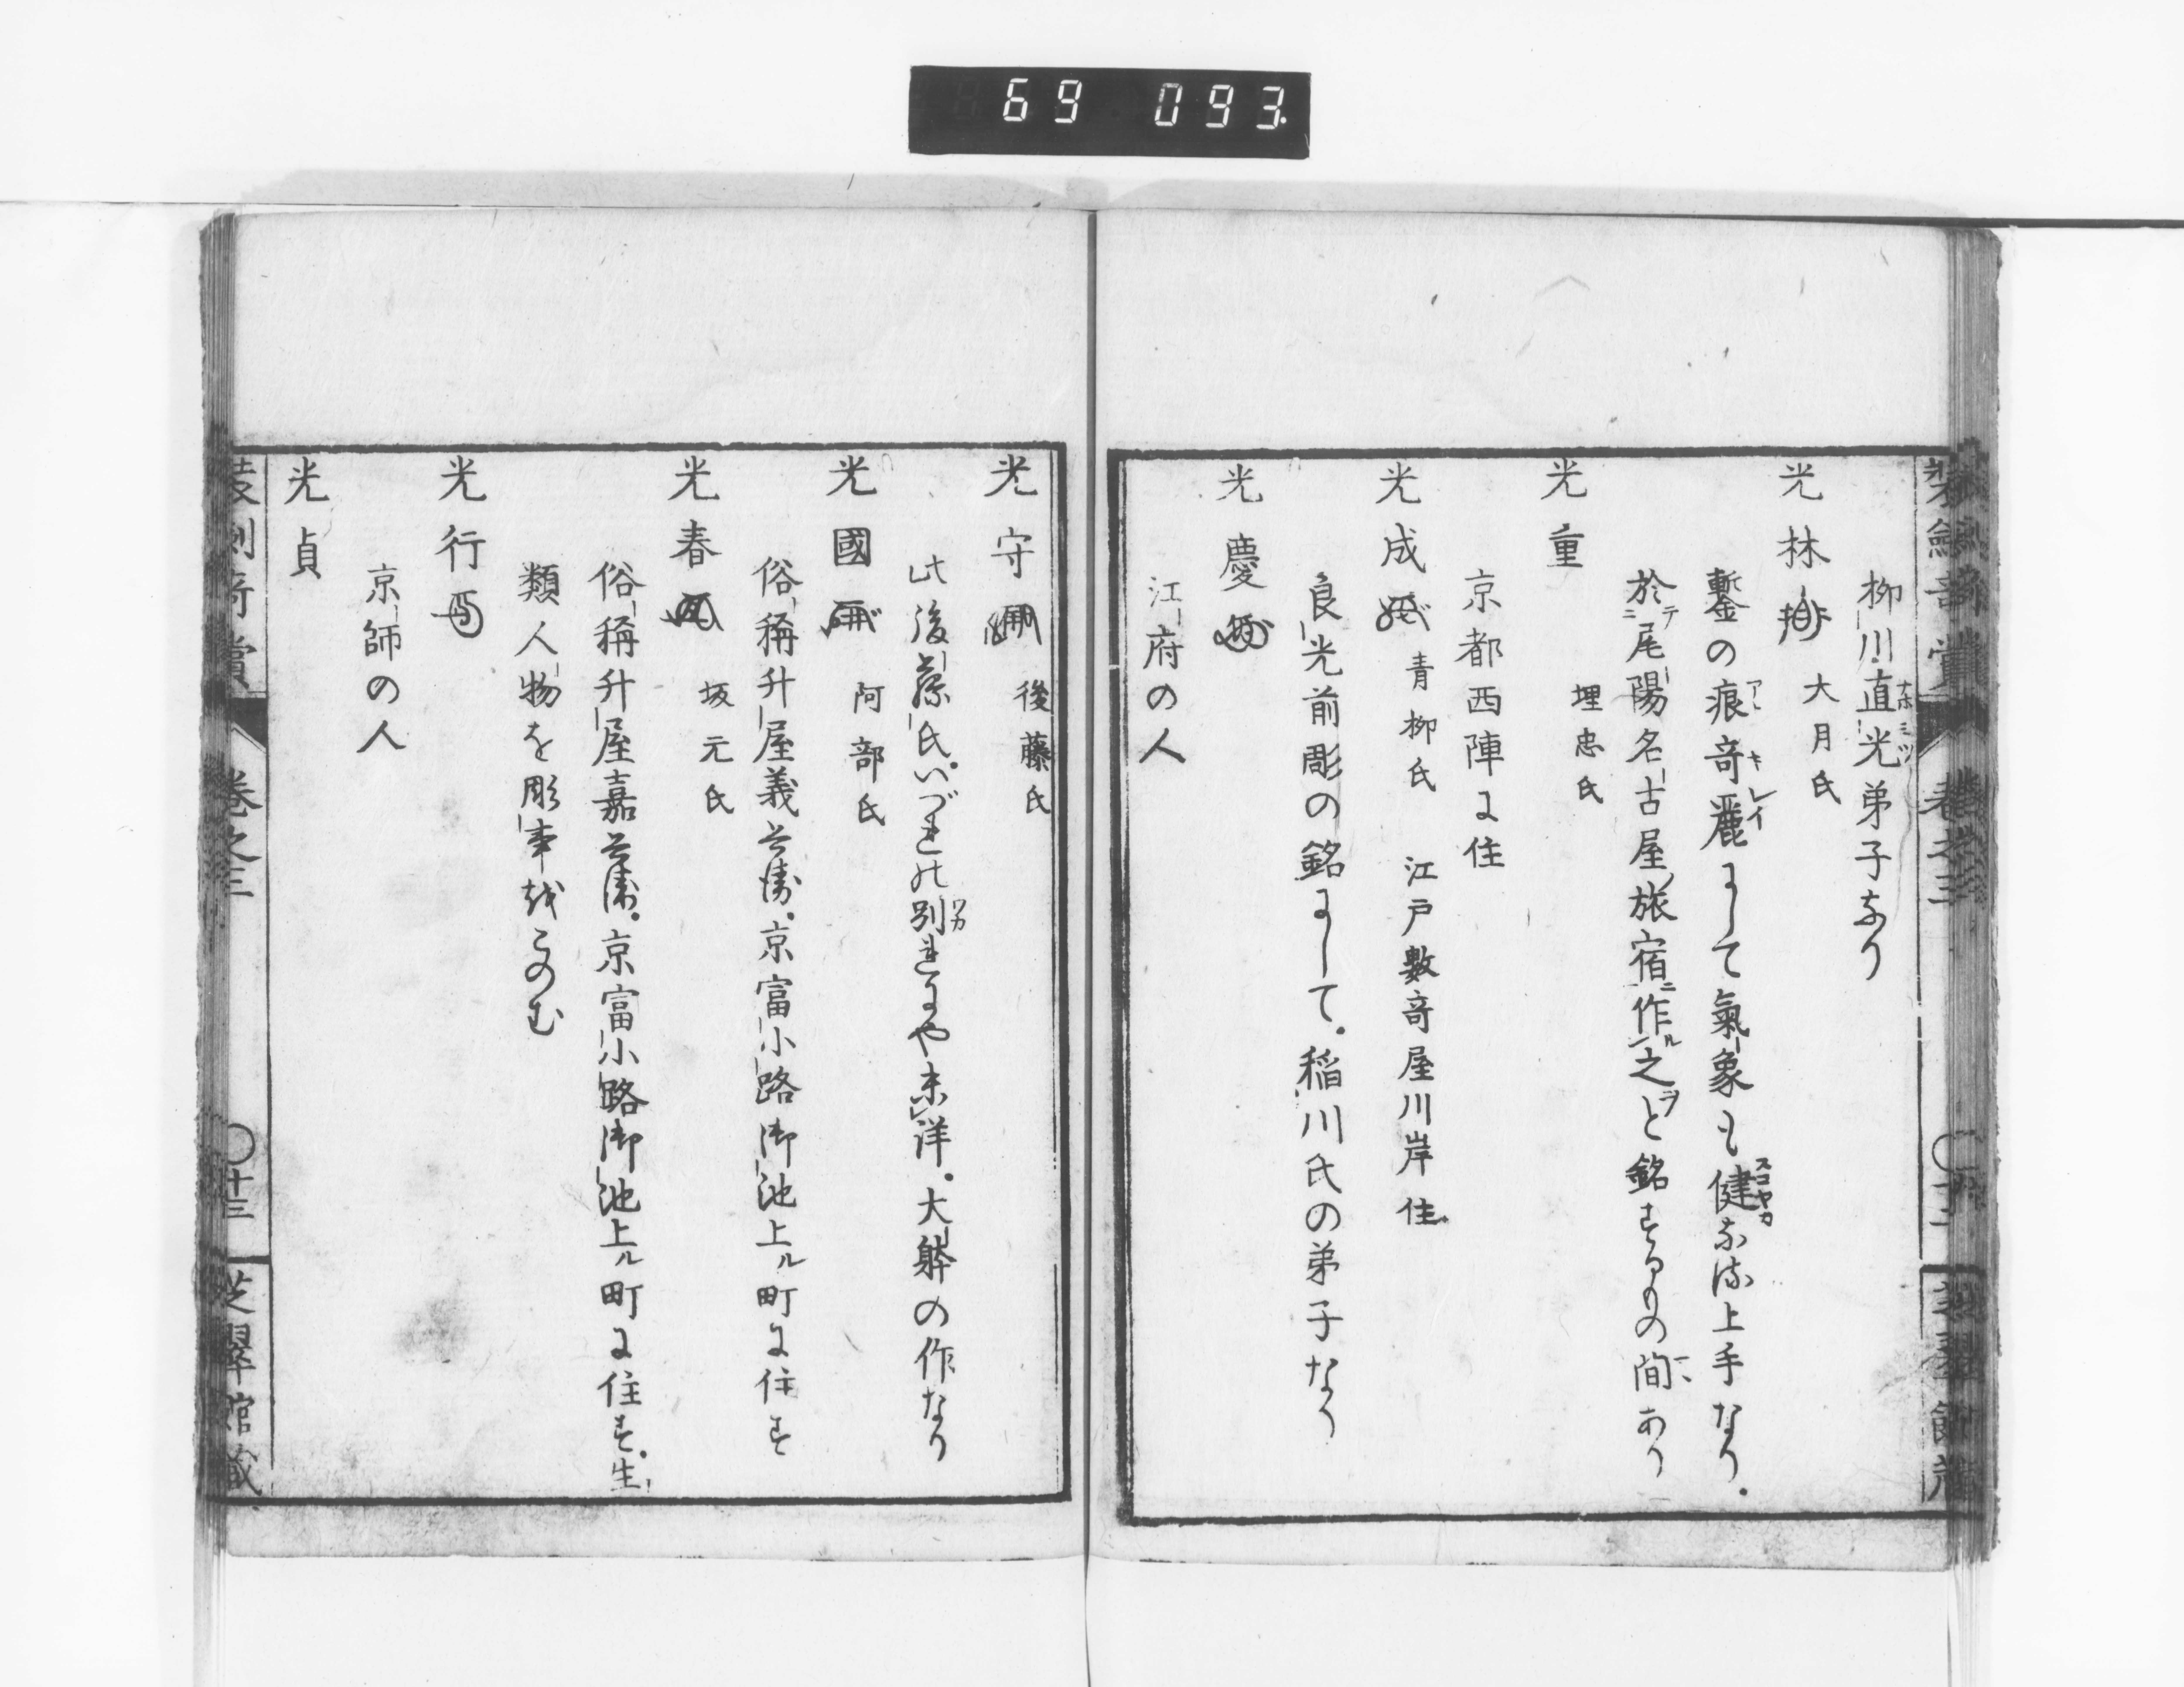 69 093
柳川直光弟子なり
ナホミツ
光林 大月氏
鏨の痕竒麗にして氣象も健なる上手なり.
アト キレイ スコヤカ
於テニ尾陽名古屋旅宿ニ作ル之ヲと銘するもの間あり
光重 埋忠氏
京都西陣に住
光成 青柳氏 江戸數竒屋川岸住
良光前彫の銘にして.稲川氏の弟子なり
光慶
江府の人
光守 後藤氏
此後藤氏.いづれの別れにや未詳.大躰の作なり
ワカ
光國 阿部氏
俗稱升屋義兵衛.京富小路御池上ル町に住す
光春 坂元氏
俗稱升屋嘉兵衛.京富小路御池上ル町に住す.生
類人物を彫事をこのむ
光行
京師の人
光貞
卷之三
〇十三
芝翠館藏